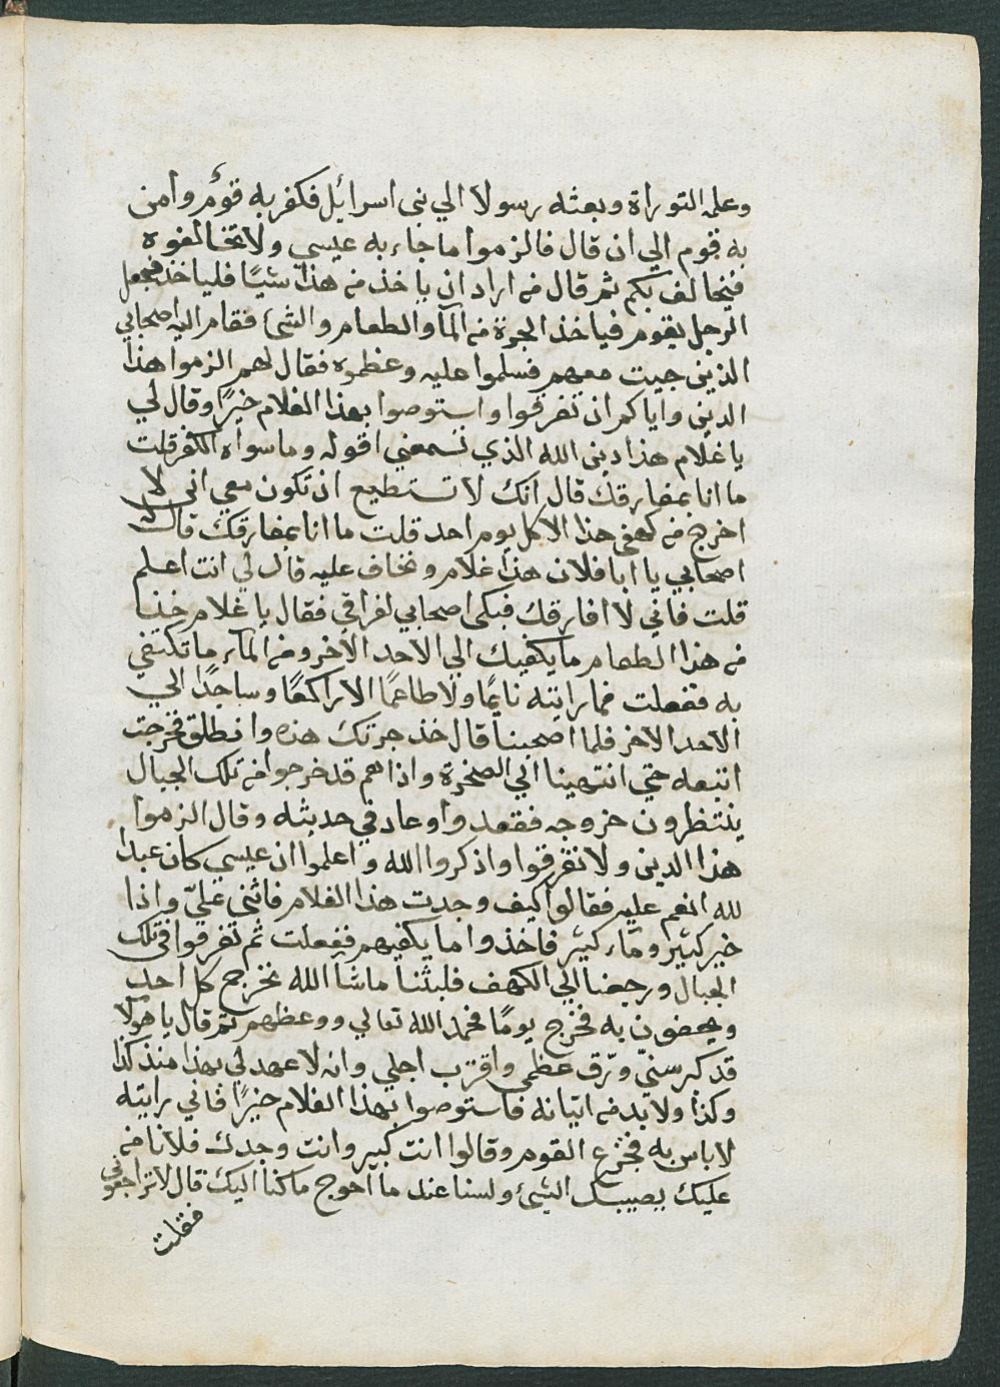 وعلمه التوراة وبعثه رسولا الي بني اسرائيل فكفر به قوم وامن
به قوم الي ان قال فالزموا ما جاء به عيسي ولا تخالفوه
فيخالف بكم ثم قال من اراد ان ياخذ من هذا شيئا فلياخذ فجعل
الرجل يقوم فياخذ الجرة من المآ والطعام والشئ فقام اليه اصحابي
الذين جيت معهم فسلموا عليه وعظموه فقال لهم الزموا هذا
الدين واياكم ان تفرقوا واستوصوا بهذا الغلام خيرًا وقال لي
يا غلام هذا دين الله الذي تسمعني اقوله وما سواه الكفر قلت
ما انا بمفارقك قال انك لا تستطيع ان تكون معي اني لا
اخرج من كهفي هذا الا كل يوم احد قلت ما انا بمفارقك قال له
اصحابي يا ابا فلان هذا غلام ونخاف عليه قال لي انت اعلم
قلت فاني لا افارقك فبكي اصحابي لفراقي فقال يا غلام خذ
من هذا الطعام ما يكفيك الي الاحد الاخر ومن المآء ما تكتفي
به ففعلت فما رايته نايمًا ولا طاعمًا الا راكعًا وساجدًا الي
الاحد الاخر فلما اصحبنا قال خذ جرتك هذه وانطلق فخرجت
اتبعه حتي انتهينا الي الصخرة واذا هم قد خرجوا من تلك الجبال
ينتظرون خروجه فقعدوا وعاد في حديثه وقال الزموا
هذا الدين ولا تفرقوا واذكروا الله واعلموا ان عيسي كان عبدا
لله انعم عليه فقالوا كيف وجدت هذا الغلام فاثني عليّ واذا
خبز كثير ومآء كثير فاخذوا ما يكفيهم ففعلت ثم تفرقوا في تلك
الجبال ورجعنا الي الكهف فلبثنا ما شآ الله نخرج كل احد
ويحضون به فخرج يومًا فحمد الله تعالي ووعظهم ثم قال يا هولا
قد كبر سني ورق عظمي واقترب اجلي وانه لا عهد لي بهذا منذ كذا
وكذا ولا بد من اتيانه فاستوصوا بهذا الغلام خيرًا فاني رايته
لا باس به فجزع القوم وقالوا انت كبير وانت وحدك فلا نامن
عليك يصيبك الشئ ولسنا عندك ما احوج ما كنا اليك قال لا تراجعوني
فقلت